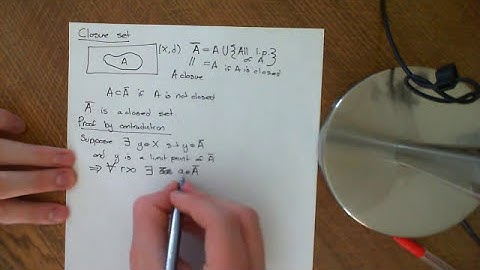 Closure set
A
(X,d) Ā = A ∪ {All l.p. of A}
// = A if A is closed
A closure
A⊂Ā if A is not closed
Ā is a closed set.
Proof by contradiction
Suppose ∃ y∈X s.t y∉Ā
and y is a limit point of Ā
⇒ ∀ r>0 ∃ a∈Ā